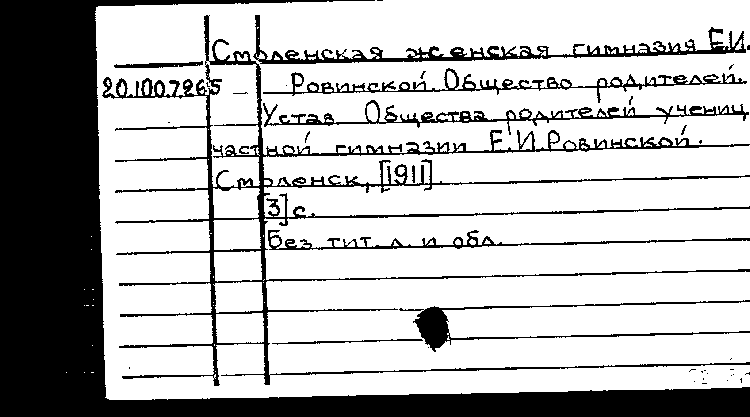 Смоленская женская гимназия Е.И.
20.100.7265 Ровинской. Общество родителей.
Устав Общества родителей учениц
частной гимназии Е.И. Ровинской.
Смоленск, [1911].
[3] с.
Без тит. л. и обл.